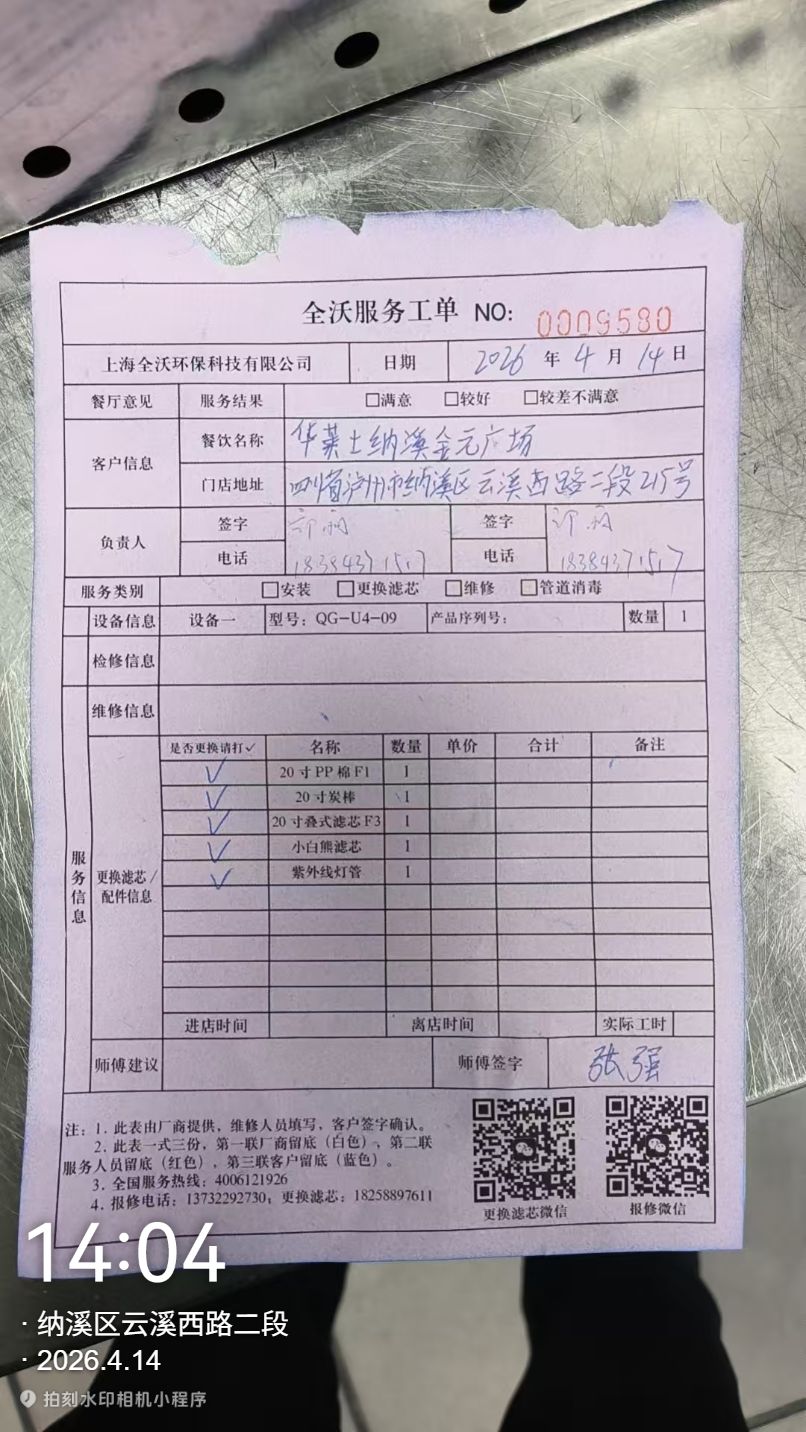 全沃服务工单 NO: 0009580
上海全沃环保科技有限公司 日期 2026 年 4 月 14 日
餐厅意见 服务结果 □满意 □较好 □较差不满意
客户信息 餐饮名称 华莱士纳溪金元广场
门店地址 四川省泸州市纳溪区云溪西路二段215号
负责人 签字 签字
电话 18384371517 电话 18384371517
服务类别 □安装 □更换滤芯 □维修 □管道消毒
设备信息 设备一 型号：QG-U4-09 产品序列号： 数量 1
检修信息
维修信息
服务信息
更换滤芯/配件信息
是否更换请打✓ 名称 数量 单价 合计 备注
✓ 20寸PP棉F1 1
✓ 20寸炭棒 1
✓ 20寸叠式滤芯F3 1
✓ 小白熊滤芯 1
✓ 紫外线灯管 1
进店时间 离店时间 实际工时
师傅建议 师傅签字 张强
注：1. 此表由厂商提供，维修人员填写，客户签字确认。
2. 此表一式三份，第一联厂商留底（白色），第二联
服务人员留底（红色），第三联客户留底（蓝色）。
3. 全国服务热线：4006121926
4. 报修电话：13732292730；更换滤芯：18258897611
更换滤芯微信 报修微信
14:04
· 纳溪区云溪西路二段
· 2026.4.14
拍刻水印相机小程序